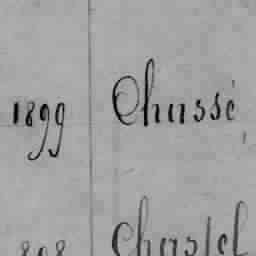 1899 Chassé
Chastel